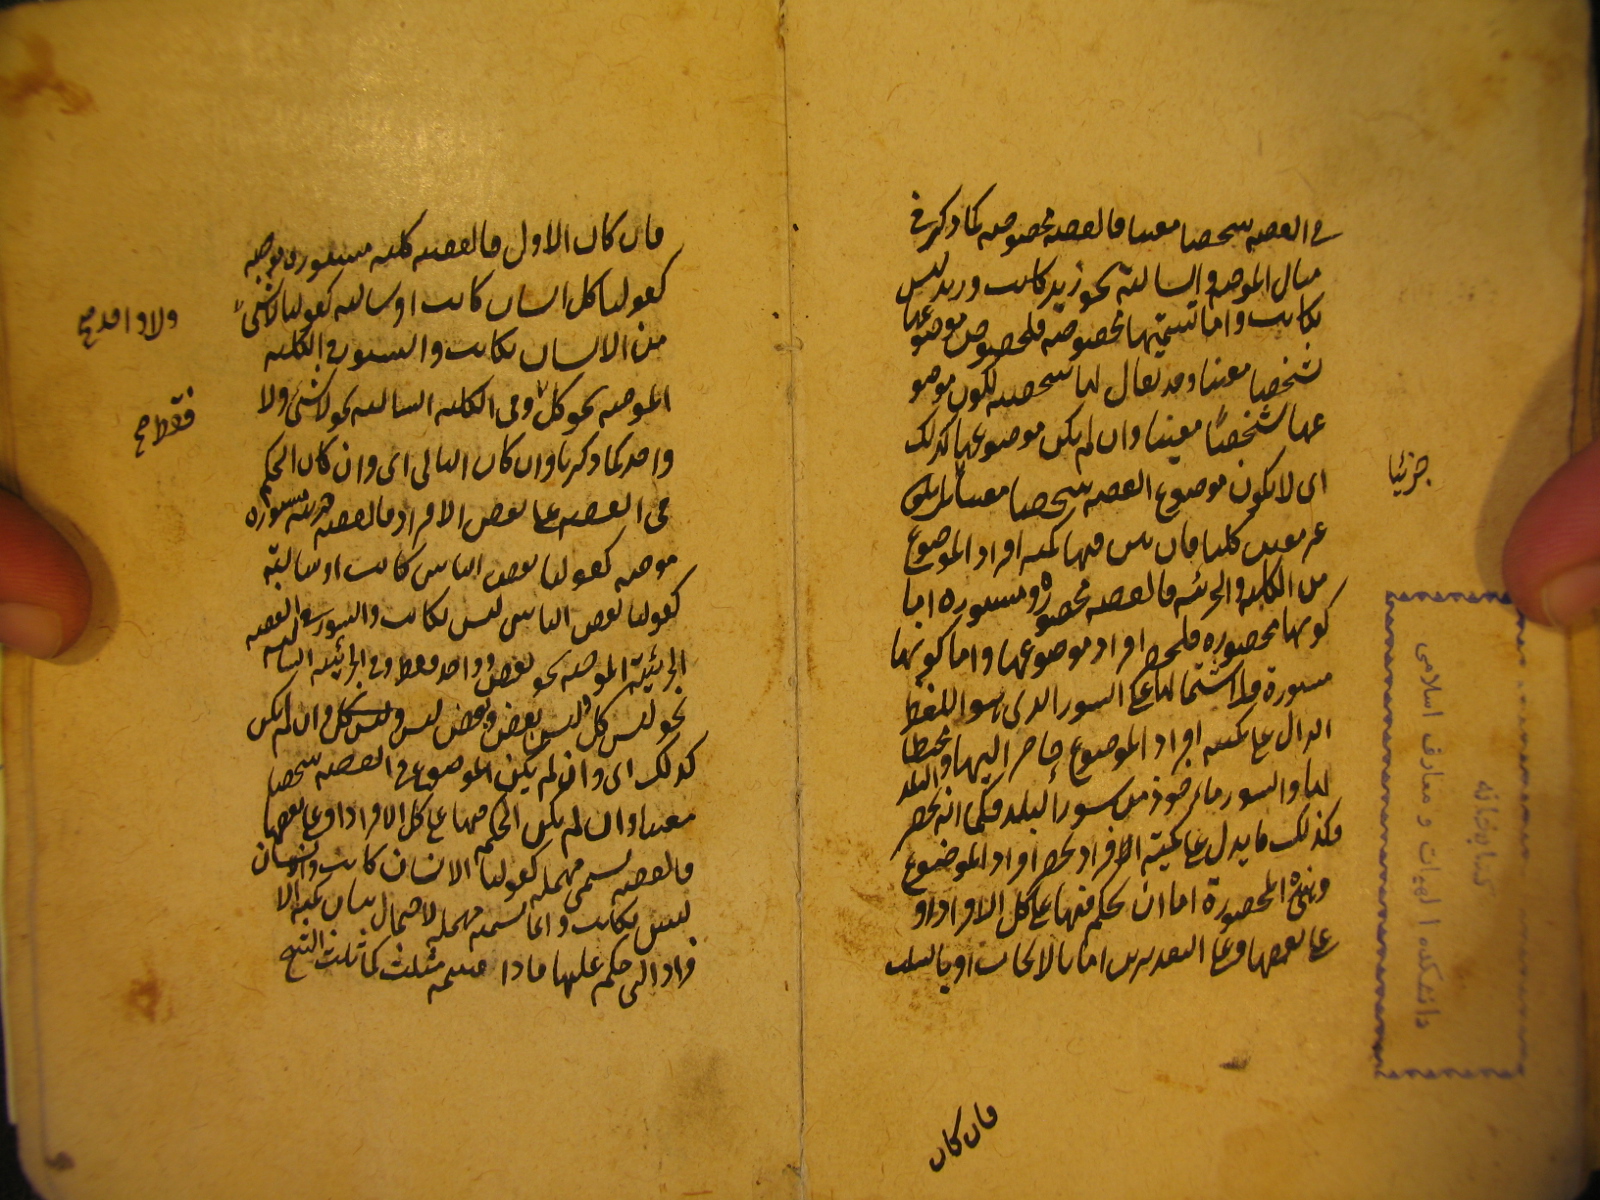 في القضيه شخصا معينا فالقضيه مخصوصه كما ذكر في
مثال الموجبه والسالبة نحو زيد كاتب وزيد ليس
بكاتب واما تسميتها مخصوصه فلخصوص موضوعها
شخصا معينا وقد يقال لها شخصيه لكون موضو
عها شخصاً معينا وان لم يكن موضوعها كذلك
اى لا يكون موضوع القضيه شخصا معينا بل يكون
جزئيا
غير معين كليا فان بين فيها كميه افراد الموضوع
من الكليه والجزئيه فالقضيه محصوره ومسوره اما
كونها محصوره فلحصر افراد موضوعها واما كونها
مسورة فلاشتمالها على السور الذى هو اللفظ
الدال على كميه افراد الموضوع حاصر اليها ومحيطا
لها والسور مأخوذ من سور البلد فكما انه يحصر البلد
فكذلك ما يدل على كمية الافراد يحصر افراد الموضوع
وهذه المحصورة اما ان يحكم فيها على كل الافراد او
على بعضها وعلى التقديرين اما بالايجاب او بالسلب
فان كان
فان كان الاول فالقضيه كليه مسوره موجبه
كقولنا كل انسان كاتب او سالبه كقولنا لا شئ
ولا واحد صح
من الانسان بكاتب والسور في الكليه
الموجبه نحو كل وفى الكليه السالبه نحو لا شئ ولا
فقط صح
واحد كما ذكرنا وان كان الثانى اى وان كان الحكم
فى القضيه على بعض الافراد فالقضيه جزئيه مسوره
موجبه كقولنا بعض الناس كاتب او سالبة
كقولنا بعض الناس ليس بكاتب والسور في القضيه
الجزئية الموجبه نحو بعض وواحد فقط وفي الجزئيه السالبه
نحو ليس كل وليس بعض وبعض ليس وان لم يكن
كذلك اى وان لم يكن الموضوع في القضيه شخصا
معينا وان لم يكن الحكم فيها على كل الافراد او على بعضها
فالقضيه تسمى مهمله كقولنا الانسان كاتب والانسان
ليس بكاتب وانما تسميه مهمله لاهمال بيان كميه الا
فراد التى حكم عليها فاذا قسمه مثلث كما ثلث الشيخ
كتابخانه
دانشكده الهيات و معارف اسلامى